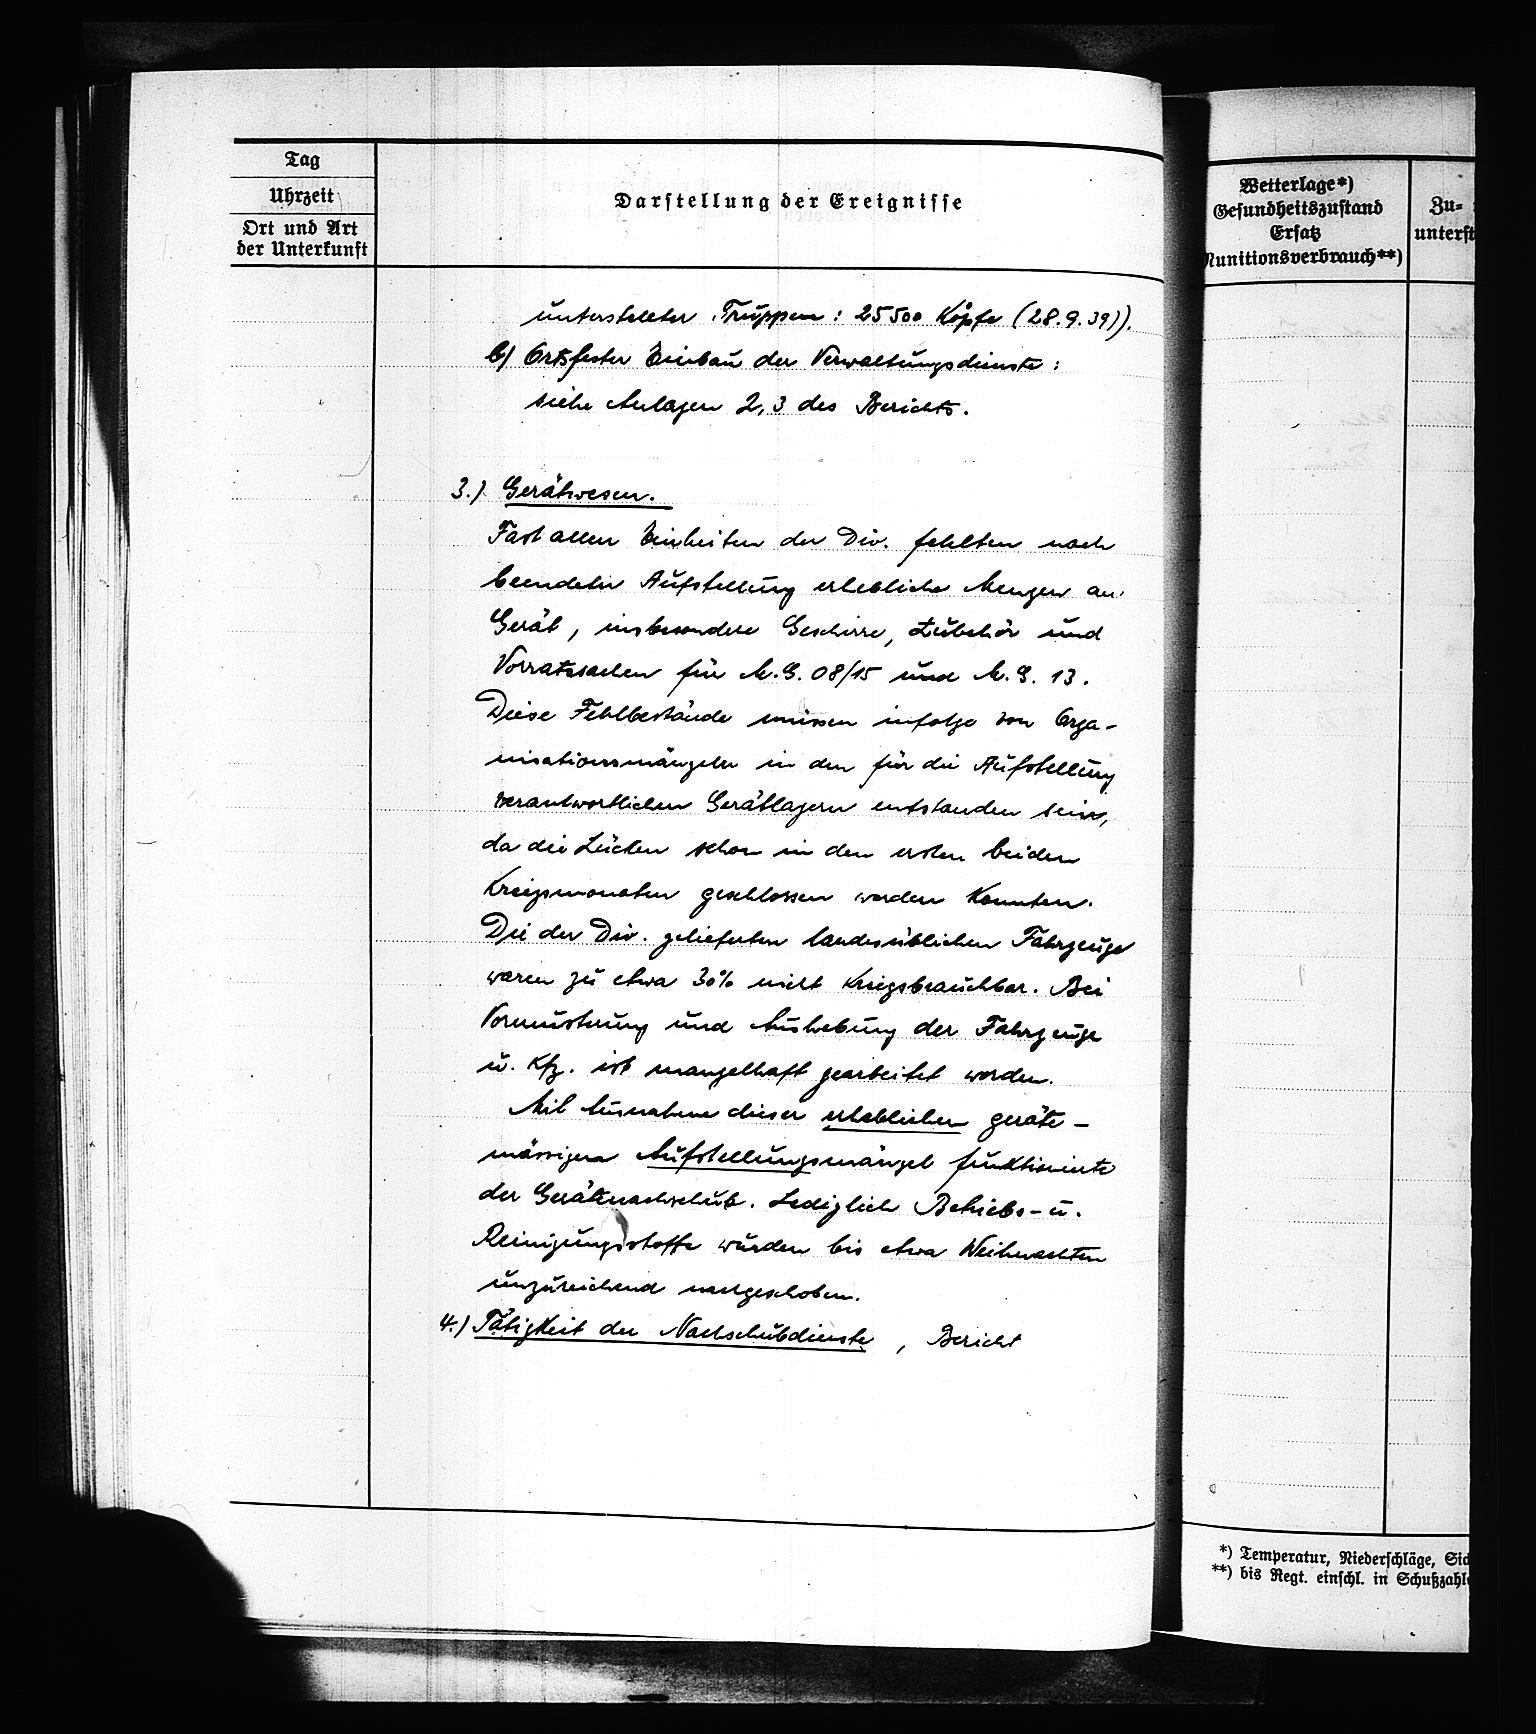 Tag
Uhrzeit
Ort und Art
der Unterkunft
Darstellung der Ereignisse
unterstellter Truppen : 25500 Köpfe (28.9.39)).
b) Ortsfester Einbau der Verwaltungsdienste :
siehe Anlagen 2, 3 des Berichts.
3.) Gerätwesen.
Fast allen Einheiten der Div. fehlten nach
beendeter Aufstellung erhebliche Mengen an
Gerät, insbesondere Geschirre, Zubehör und
Vorratssachen für M.G. 08/15 und M.G. 13.
Diese Fehlbestände müssen infolge von Orga-
nisationsmängeln in den für die Aufstellung
verantwortlichen Gerätlagern entstanden sein,
da die Lücken schon in den ersten beiden
Kriegsmonaten geschlossen werden konnten.
Die der Div. gelieferten landesüblichen Fahrzeuge
waren zu etwa 30% nicht kriegsbrauchbar. Bei
Vormusterung und Aushebung der Fahrzeuge
u. Kfz. ist mangelhaft gearbeitet worden.
Mit Ausnahme dieser erheblichen geräte-
mässigen Aufstellungsmängel funktionierte
der Gerätnachschub. Lediglich Betriebs- u.
Reinigungsstoffe wurden bis etwa Weihnachten
unzureichend nachgeschoben.
4.) Tätigkeit der Nachschubdienste, Bericht
Wetterlage*)
Gesundheitszustand
Ersatz
Munitionsverbrauch**)
Zu-
unterst
*) Temperatur, Niederschläge, Sic
**) bis Regt. einschl. in Schußzahl